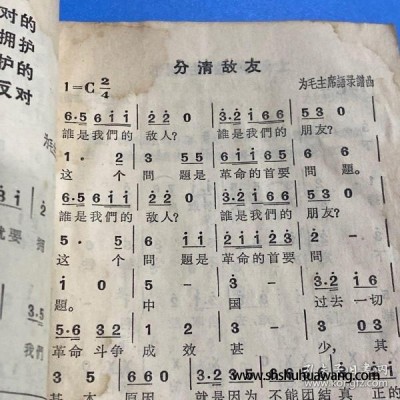 对的
拥护
护的
反对
分清敌友
1=C 2/4
为毛主席語录譜曲
6·5 6 i i | 2 2 0 | 3·2 i 6 6 | 5 3 0
誰是我們的 敌人? 誰是我們的 朋友?
1 · 2 | 3 5 5 | 6 i i 6 5 | 3 ·
这 个 問 題是 革命的首要 問
6·5 6 i i | 2 2 0 | 3·2 i 6 6 | 5 3 0
誰是我們的 敌人? 誰是我們的 朋友?
5 · 5 | 6 i i | 2 i i 2 3 | 2 ·
这 个 問 題是 革命的首要 問
i 0 | 2 - | 5 - | 3·2 i 6
題。 中 国 过去一切
5·6 3 2 | 1 2 | 3 - | 3 0 3
革命斗争 成效 甚 少, 其
基 本 原因 就是因为 不能团結真 正的
3 i | 2
就要 問
3·5
我們
www.shshuhuawang.com